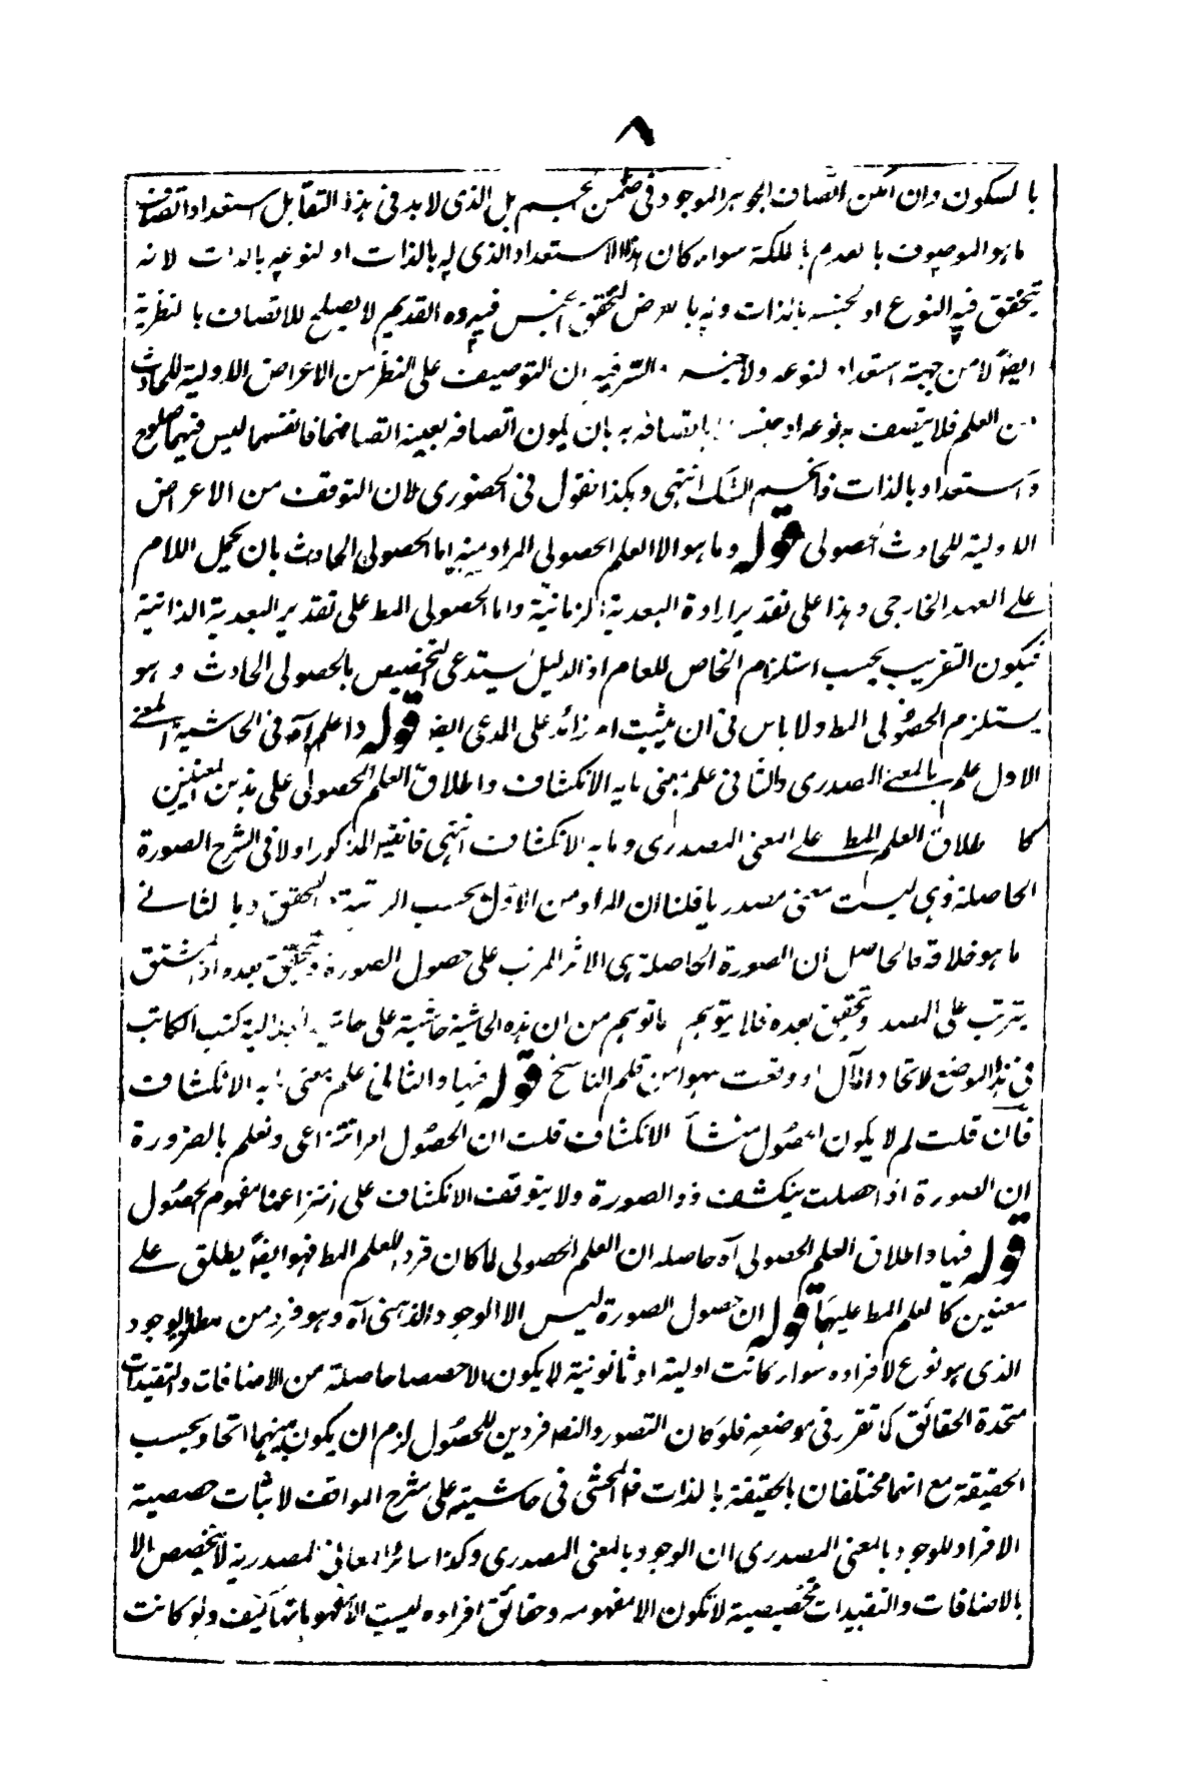 ٨
بالسكون وان امكن اتصاف الجوهر الموجود فى ضمن الجسم بل الذى لا بد فى هذا التقابل استعداد اتصاف
ما هو الموصوف بالعدم بالملكة سواء كان هذا الاستعداد الذى له بالذات او لنوعه بالذات لانه
يتحقق فيه النوع او لجنسه بالذات وله بالعرض لتحقق الجنس فيه وه القديم لا يصلح للاتصاف بالنظرية
ايضا لا من جهة استعداد لنوعه ولا جنسه والسر فيه ان التوصيف على النظر من الاعراض الاولية للحادث
من العلم فلا يتصف به نوعه او جنسه اتصافه به بان يكون اتصافه بعينه اتصافهما فانفسهما ليس فيهما صلوح
واستعداد بالذات فانحسم الشك انتهى وهكذا نقول فى الحضورى لان التوقف من الاعراض
الاولية للحادث الحصولى قوله وما هو الا العلم الحصولى المراد منه اما الحصولى الحادث بان يحمل اللام
على العهد الخارجى وهذا على تقدير ارادة البعدية الزمانية واما الحصولى المط على تقدير البعدية الذاتية
فيكون التقريب بحسب استلزام الخاص للعام اذ الدليل يستدعى التخصيص بالحصولى الحادث وهو
يستلزم الحصولى المط ولا باس فى ان يثبت امر زائد على المدعى ايضا قوله واعلم آه فى الحاشية المعنى
الاول علم بالمعنى المصدرى والثانى علم بمعنى ما به الانكشاف واطلاق العلم الحصولى على هذين المعنيين
كاطلاق العلم المط على المعنى المصدرى وما به الانكشاف انتهى فان قيل المذكور اولا فى الشرح الصورة
الحاصلة وهى ليست معنى مصدريا قلنا ان المراد من الاول بحسب الرتبة والتحقق وبالثانى
ما هو خلافه فالحاصل ان الصورة الحاصلة هى الاثر المرتب على حصول الصورة وتحقق بعده اذ المشتق
يترتب على المصدر وتحقق بعده فلا يتوهم ما توهم من ان هذه الحاشية حاشية على حاشية كتب الكاتب
فى هذا الموضع لاتحاد المآل او وقعت سهوا من قلم الناسخ قوله فيها والثانى علم بمعنى ما به الانكشاف
فان قلت لم لا يكون الحصول منشأ الانكشاف قلت ان الحصول امر انتزاعى ونعلم بالضرورة
ان الصورة اذا حصلت ينكشف ذو الصورة ولا يتوقف الانكشاف على انتزاعنا مفهوم الحصول
قوله فيها واطلاق العلم الحصولى آه حاصله ان العلم الحصولى لما كان فردا للعلم المط فهو ايضا يطلق على
معنين كالعلم المط عليهما قوله ان حصول الصورة ليس الا الوجود الذهنى آه وهو فرد من مطلق الوجود
الذى هو نوع لافراده سواء كانت اولية او ثانوية لا يكون الا حصصا حاصلة من الاضافات والتقييدات
متحدة الحقائق كما تقرر فى موضعه فلو كان التصور والتصـ فردين للحصول لزم ان يكون بينهما اتحاد بحسب
الحقيقة مع انهما مختلفان بالحقيقة بالذات قال المحشى فى حاشيته على شرح المواقف لاثبات حصصية
الافراد للوجود بالمعنى المصدرى ان الوجود بالمعنى المصدرى وكذا سائر المعانى المصدرية لا تخصص الا
بالاضافات والتقييدات تخصيصية لا تكون الا مفهومه وحقائق افراده ليست الا مفهوماتها كيف ولو كانت